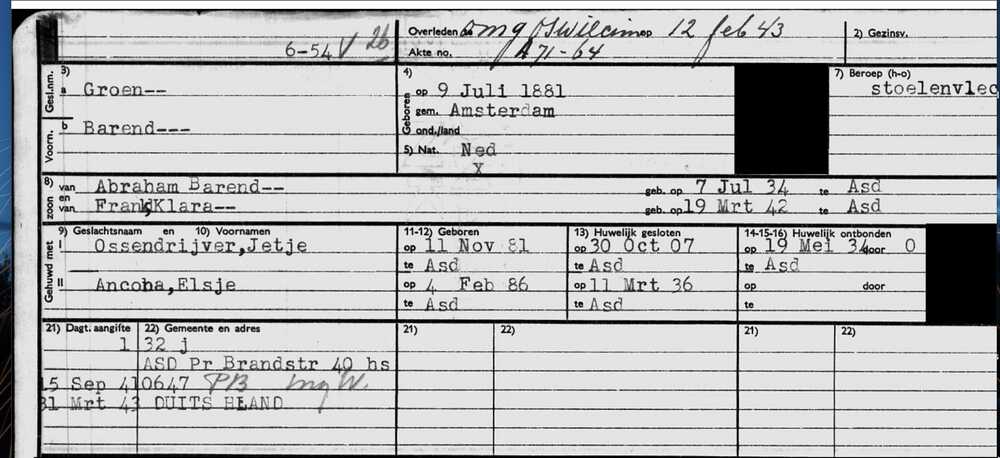 6-54 V 26
Overleden te omg Oswiecim op 12 feb 43
Akte no. A 71-64
2) Gezinsv.
Gesl.nm. 3) a Groen--
Voorn. b Barend---
4) Geboren op 9 Juli 1881
gem. Amsterdam
ond./land
5) Nat. Ned
X
7) Beroep (h-o)
stoelenvlec
8) zoon van Abraham Barend-- geb. op 7 Jul 34 te Asd
en van Frank,Klara-- geb. op 19 Mrt 42 te Asd
9) Geslachtsnaam en 10) Voornamen 11-12) Geboren 13) Huwelijk gesloten 14-15-16) Huwelijk ontbonden
Gehuwd met I Ossendrijver,Jetje op 11 Nov 81 op 30 Oct 07 op 19 Mei 34 door O
te Asd te Asd te Asd
II Ancona,Elsje op 4 Feb 86 op 11 Mrt 36 op door
te Asd te Asd te
21) Dagt. aangifte 22) Gemeente en adres 21) 22) 21) 22)
1 32 j
ASD Pr Brandstr 40 hs
15 Sep 41 0647 PB
31 Mrt 43 DUITSHLAND